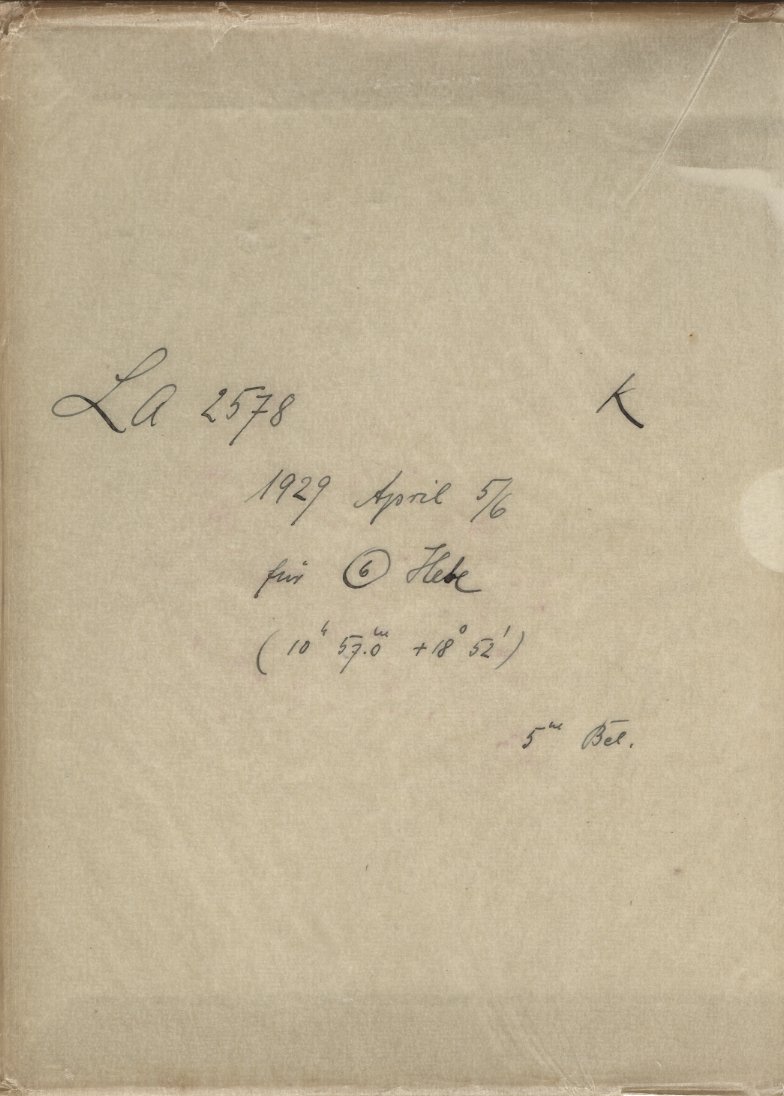 LA 2578 K
1929 April 5/6
für ⑥ Hebe
(10ʰ 57.0ᵐ +18° 52')
5ᵐ Bel.